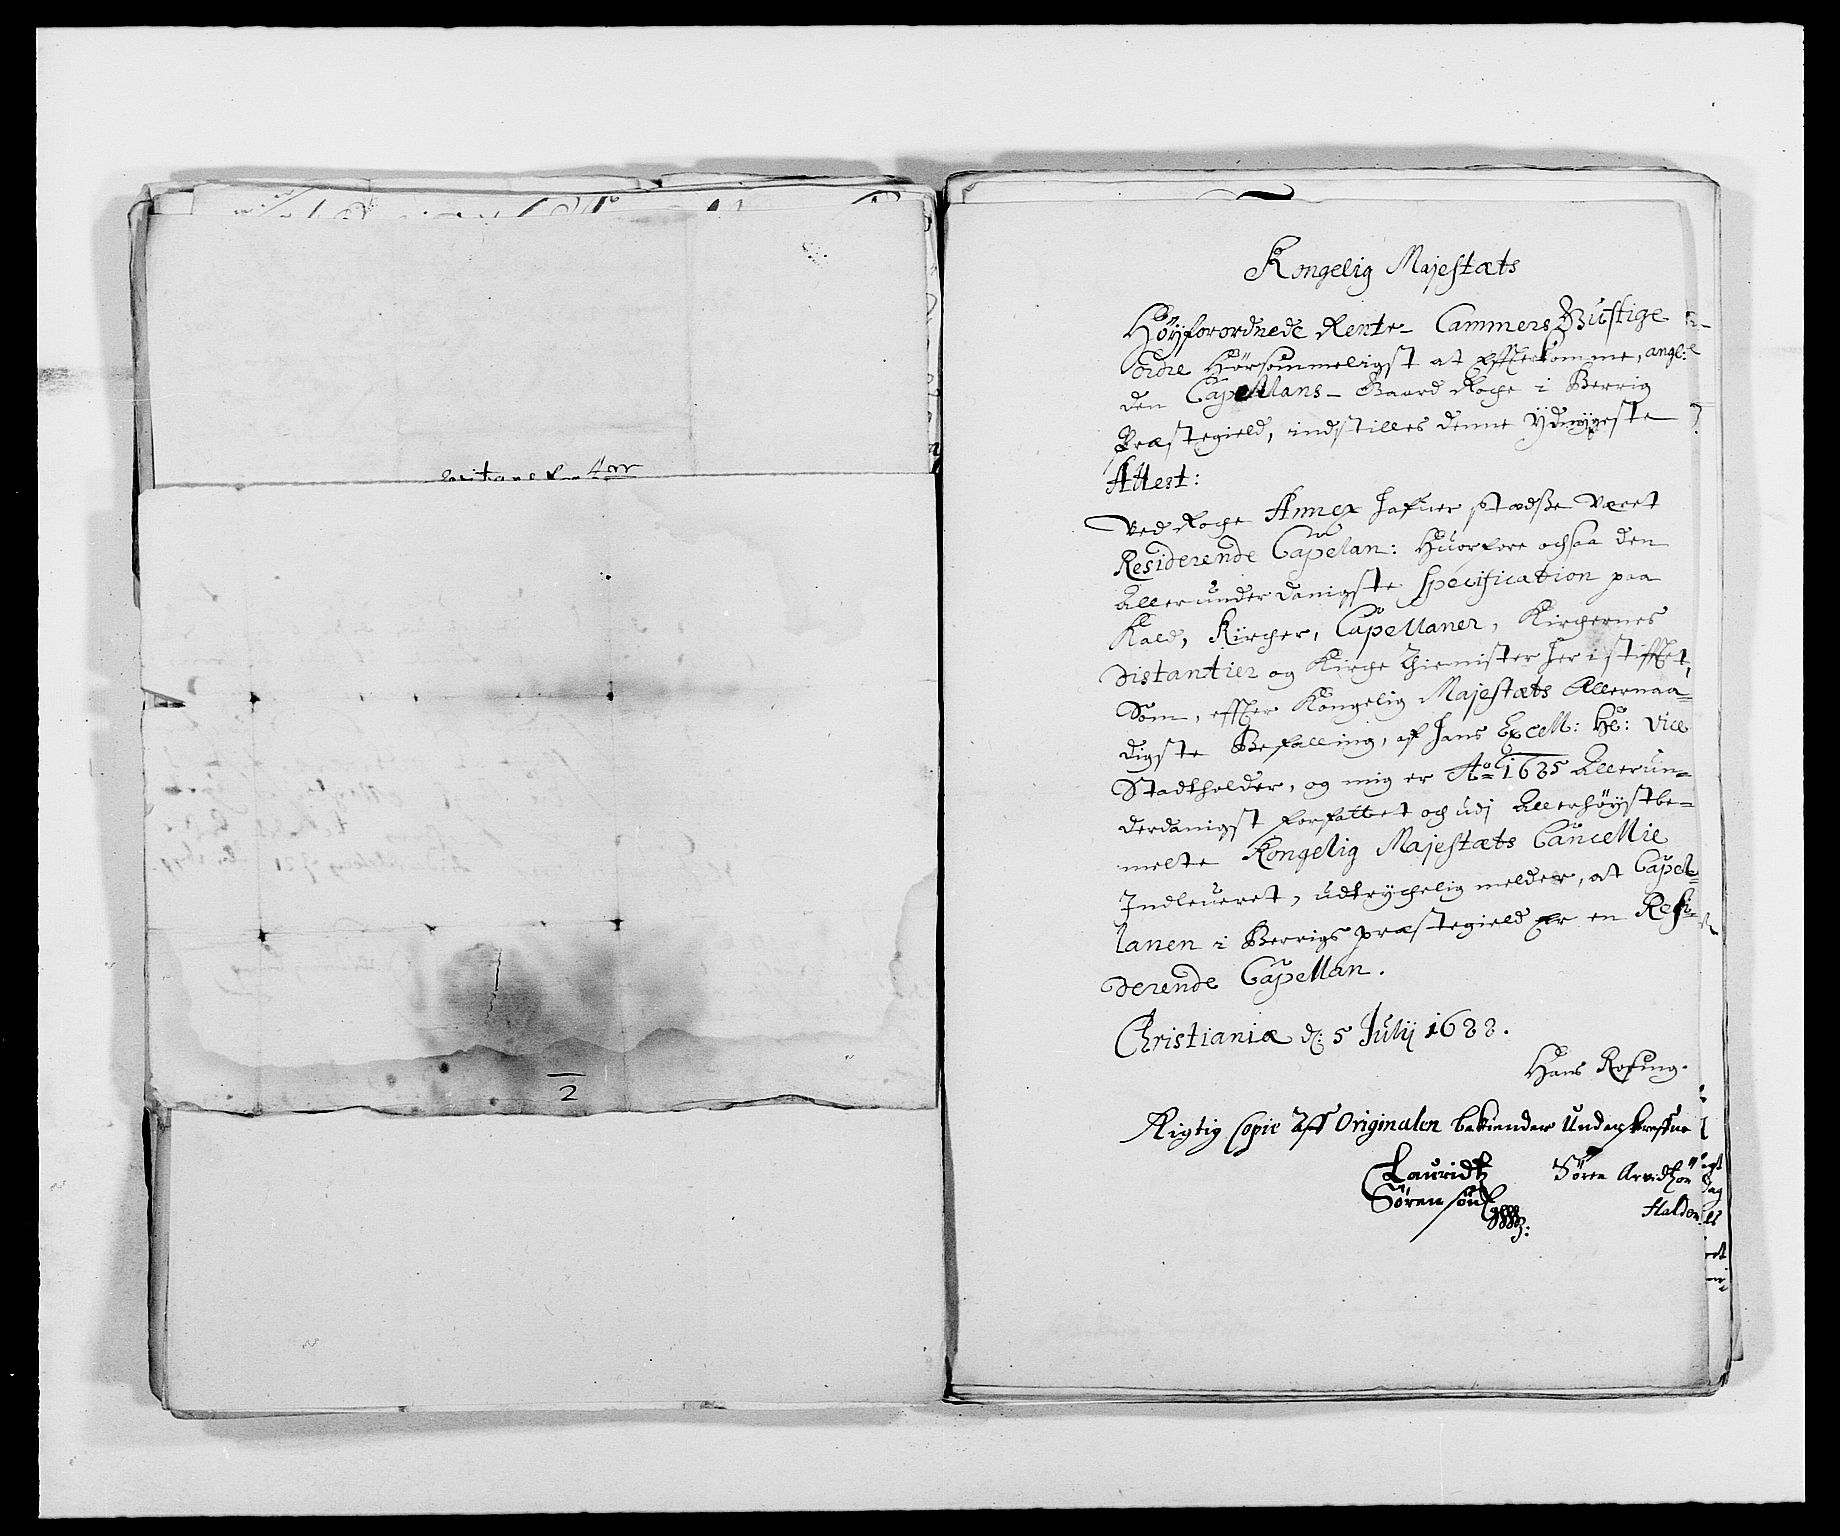 2
Kongelig Majestæts
Høyforordnede Rente- Cammers Gunstige
ordre Hørsommeligst at effterkomme, angl:
den Capellans- Gaard Roche i Berrig
Præstegield, indstilles denne Ydmygeste
Attest:
Ved Roche Annex hafuer stædsse været
Residerende Capelan: Huorfore ochsaa den
Allerunderdanigste Specification paa
Kald, Kircher, Capellaner, Kirchernes
Distantier og Kirche Thienister her i stifftet,
Som, effter Kongelig Majestæts Allernaa=
digste Befalling, af hans Excell: Hr: Vice
Stadtholder, og mig er Ao 1685 Allerun=
derdanigst forfattet och udj Allerhøystbe=
melte Kongelig Majestæts Cancellie
Indleueret, udtrychelig melder, at Capel=
lanen i Berrigs præstegield er en Resi=
derende Capellan.
Christiania d: 5 Julij 1688.
Hans Rosing.
Rigtig Copie Aff Originalen bekiender Underskrefne
Lauridtz
Sørensøn
Søren Arvidtzøn
Halden